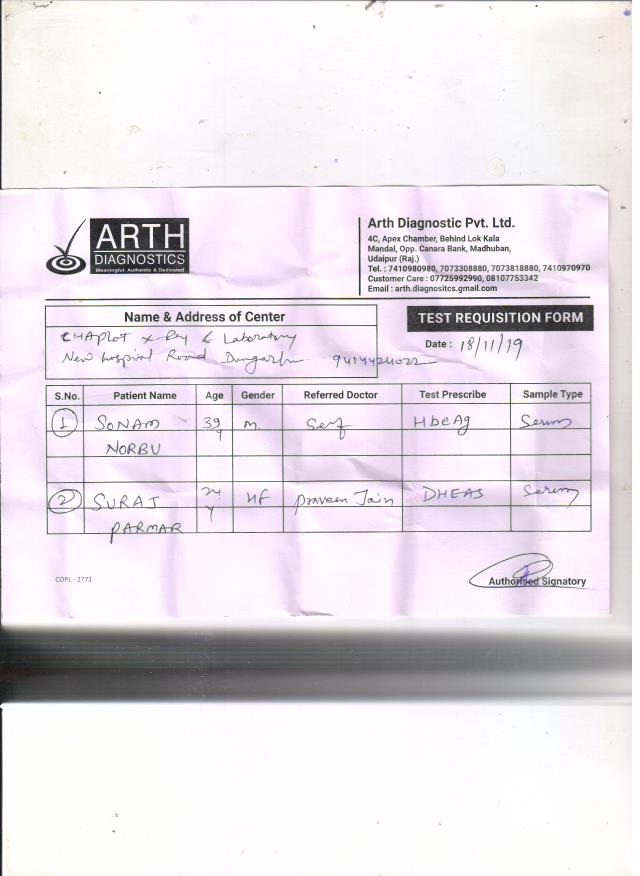 ARTH
DIAGNOSTICS
Meaningful. Authentic & Dedicated
Arth Diagnostic Pvt. Ltd.
4C, Apex Chamber, Behind Lok Kala
Mandal, Opp. Canara Bank, Madhuban,
Udaipur (Raj.)
Tel. : 7410980980, 7073308880, 7073818880, 7410970970
Customer Care : 07725992990, 08107753342
Email : arth.diagnositcs.gmail.com
Name & Address of Center
CHAPlot x-Ray & Laboratory
New Hospital Road
TEST REQUISITION FORM
Date : 18/11/19
S.No. Patient Name Age Gender Referred Doctor Test Prescribe Sample Type
1 SONAM 39 y M. Self HbeAg Serum
NORBU
2 SURAJ y Praveen Jain DHEAS Serum
PARMAR
COPL - 2771
Authorised Signatory